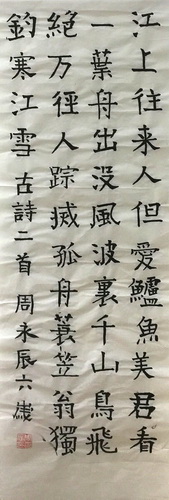 江上往来人但愛鱸魚美君看
一葉舟出没風波裏千山鳥飛
絕万徑人踪滅孤舟蓑笠翁獨
釣寒江雪 古詩二首 周永辰六歲